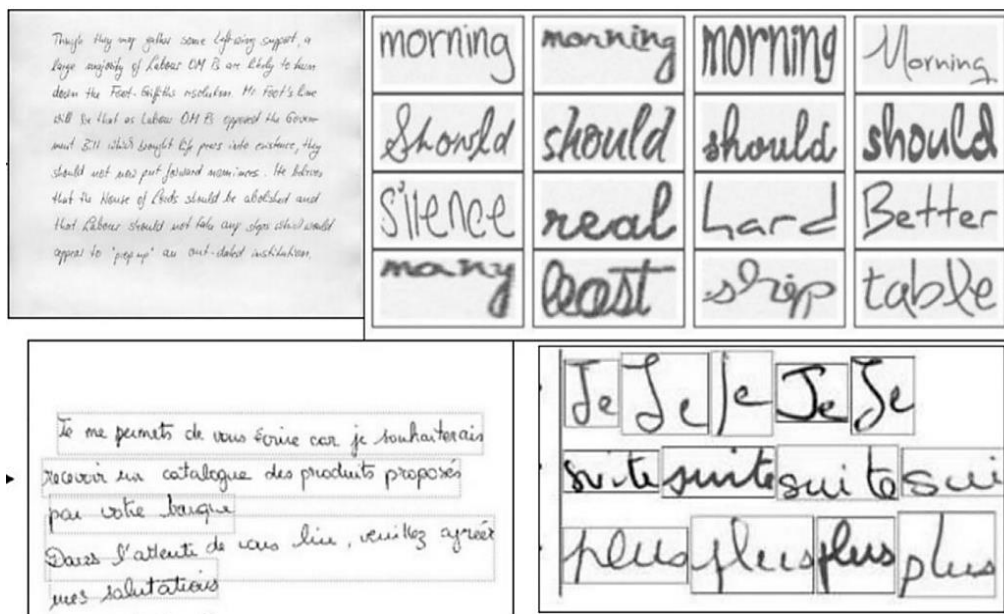 Though they may gather some Left-wing support, a
large majority of Labour OM Ps are likely to turn
down the Foot-Griffiths resolution. Mr. Foot's line
will be that as Labour OM Ps opposed the Govern
ment Bill which brought life peers into existence, they
should not now put forward nominees. He believes
that the House of Lords should be abolished and
that Labour should not take any steps which would
appear to "prop up" an out-dated institution.
morning morning morning Morning
Should should should should
silence real Lard Better
many least ship table
Je me permets de vous écrire car je souhaiterais
recevoir un catalogue des produits proposés
par votre banque
Dans l'attente de vous lire, veuillez agréér
mes salutations
Je Je Je Je Je
suite suite suite sui
plus plus plus plus